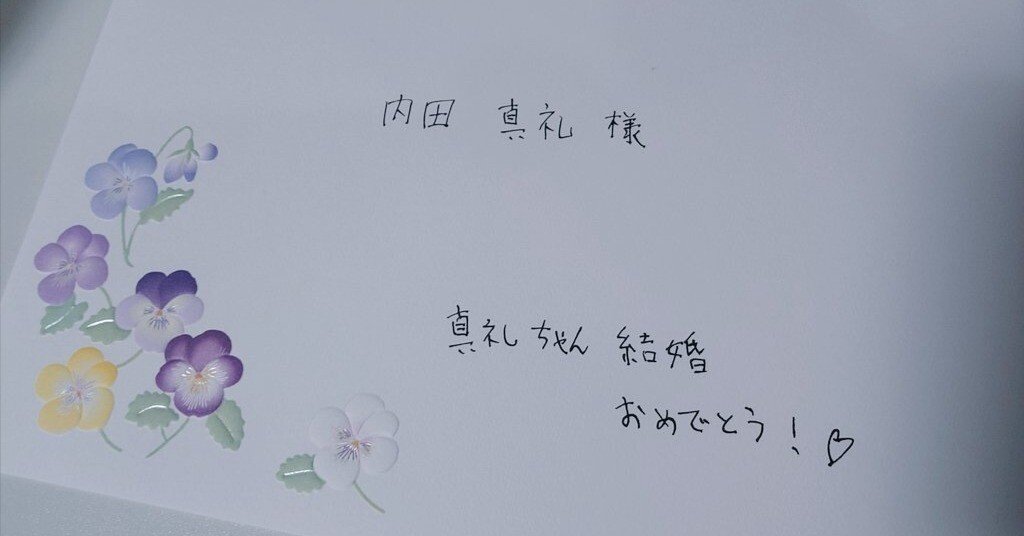 内田 真礼 様
真礼ちゃん 結婚
おめでとう！♡